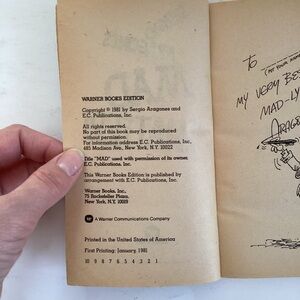 WARNER BOOKS EDITION
Copyright © 1981 by Sergio Aragones and
E.C. Publications, Inc.
All rights reserved.
No part of this book may be reproduced
without permission.
For information address E.C. Publications, Inc.
485 Madison Ave., New York, N.Y. 10022
Title "MAD" used with permission of its owner,
E.C. Publications, Inc.
This Warner Books Edition is published by
arrangement with E.C. Publications, Inc.
Warner Books, Inc.,
75 Rockefeller Plaza,
New York, N.Y. 10019
A Warner Communications Company
Printed in the United States of America
First Printing: January, 1981
10 9 8 7 6 5 4 3 2 1
TO
(PUT YOUR
MY VERY BE
MAD-LY
ARAGON